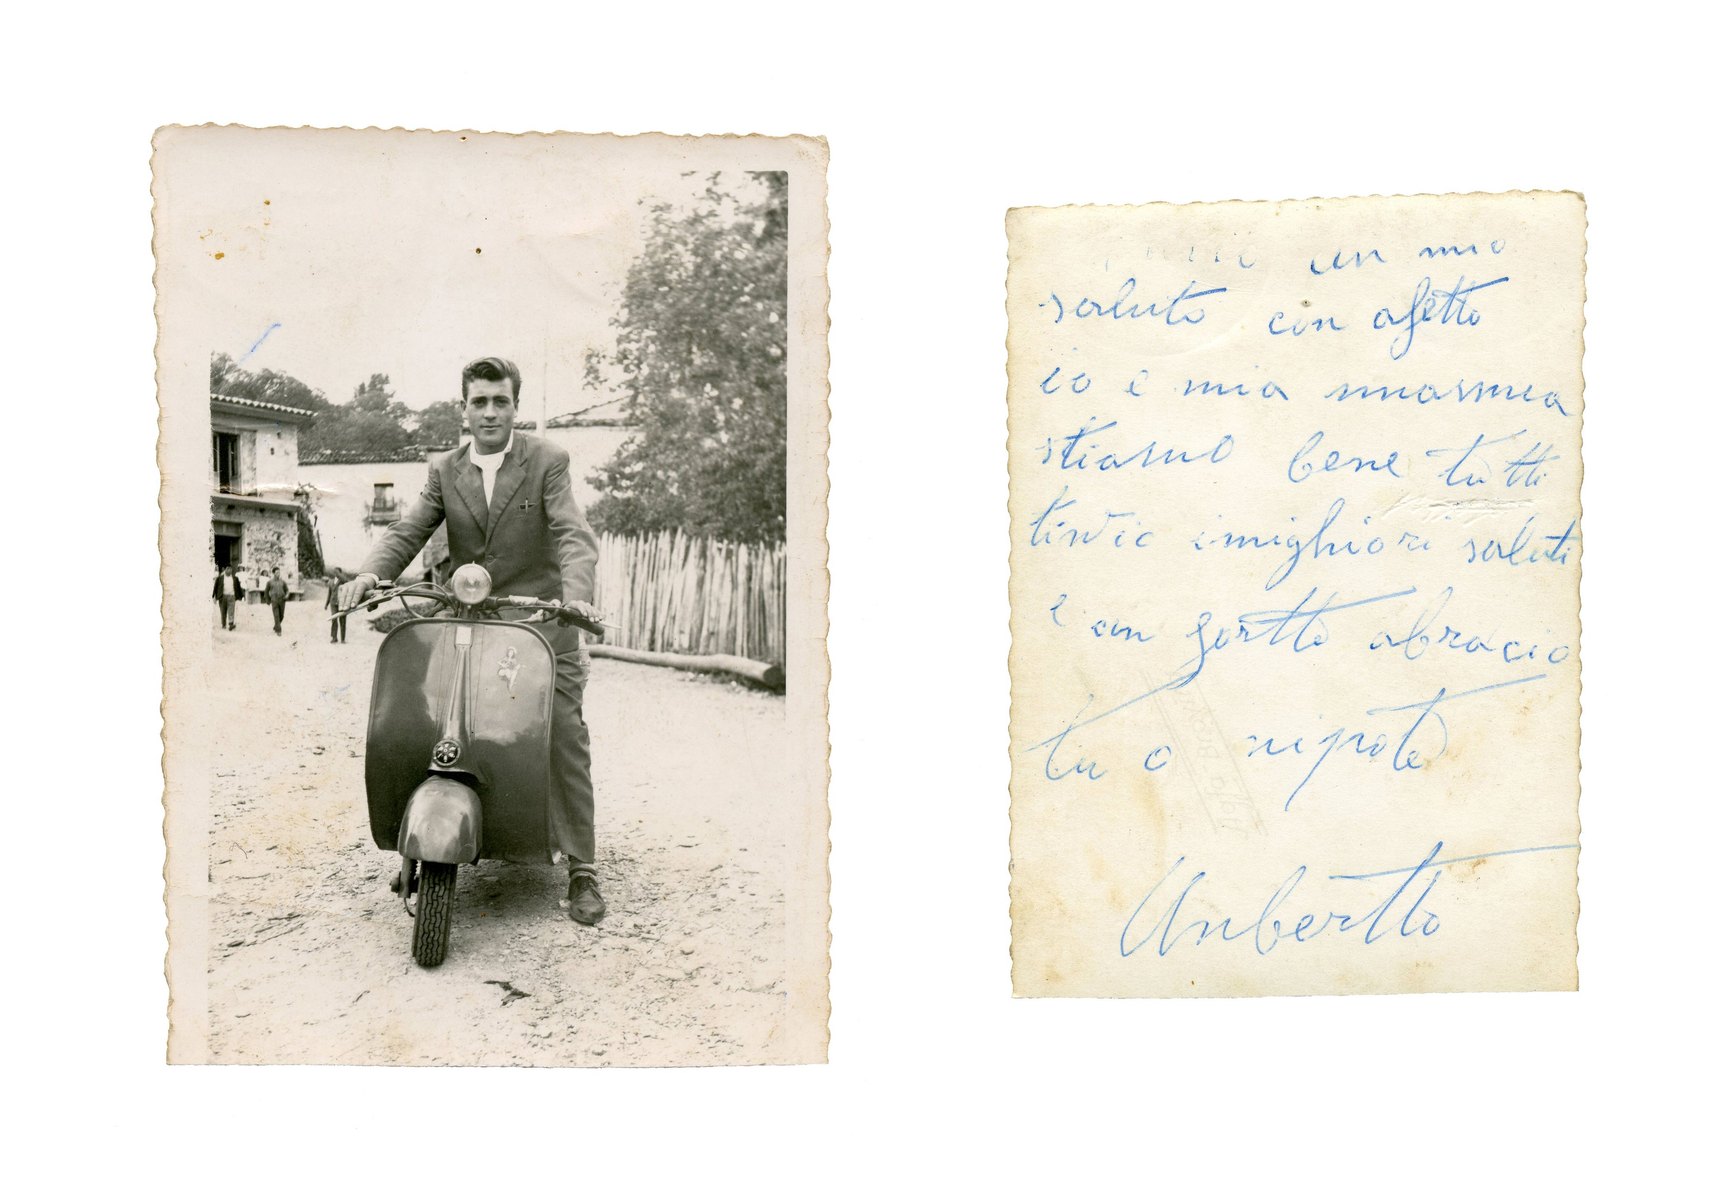 un mio
saluto con afetto
io e mia mamma
stiamo bene tutti
tinvio i mighiori saluti
e un fortte abracio
tu o nipote
Unbertto